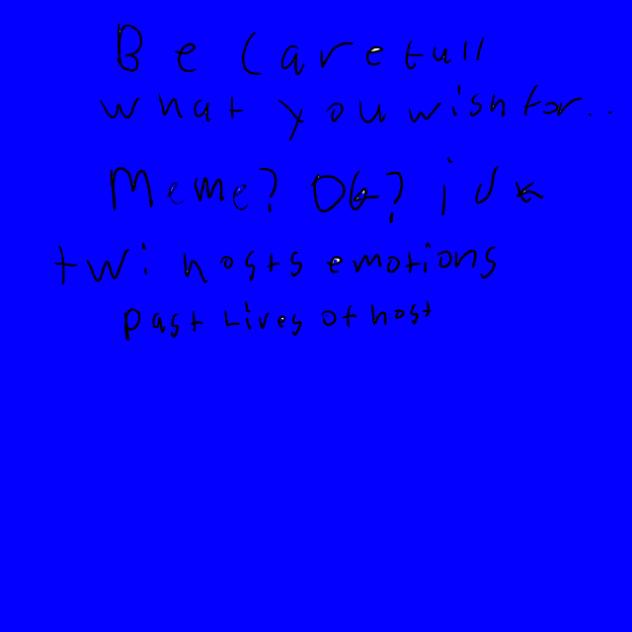 Be Carefull
what you wish for..
Meme? OG? idk
tw: hosts emotions
past Lives of host